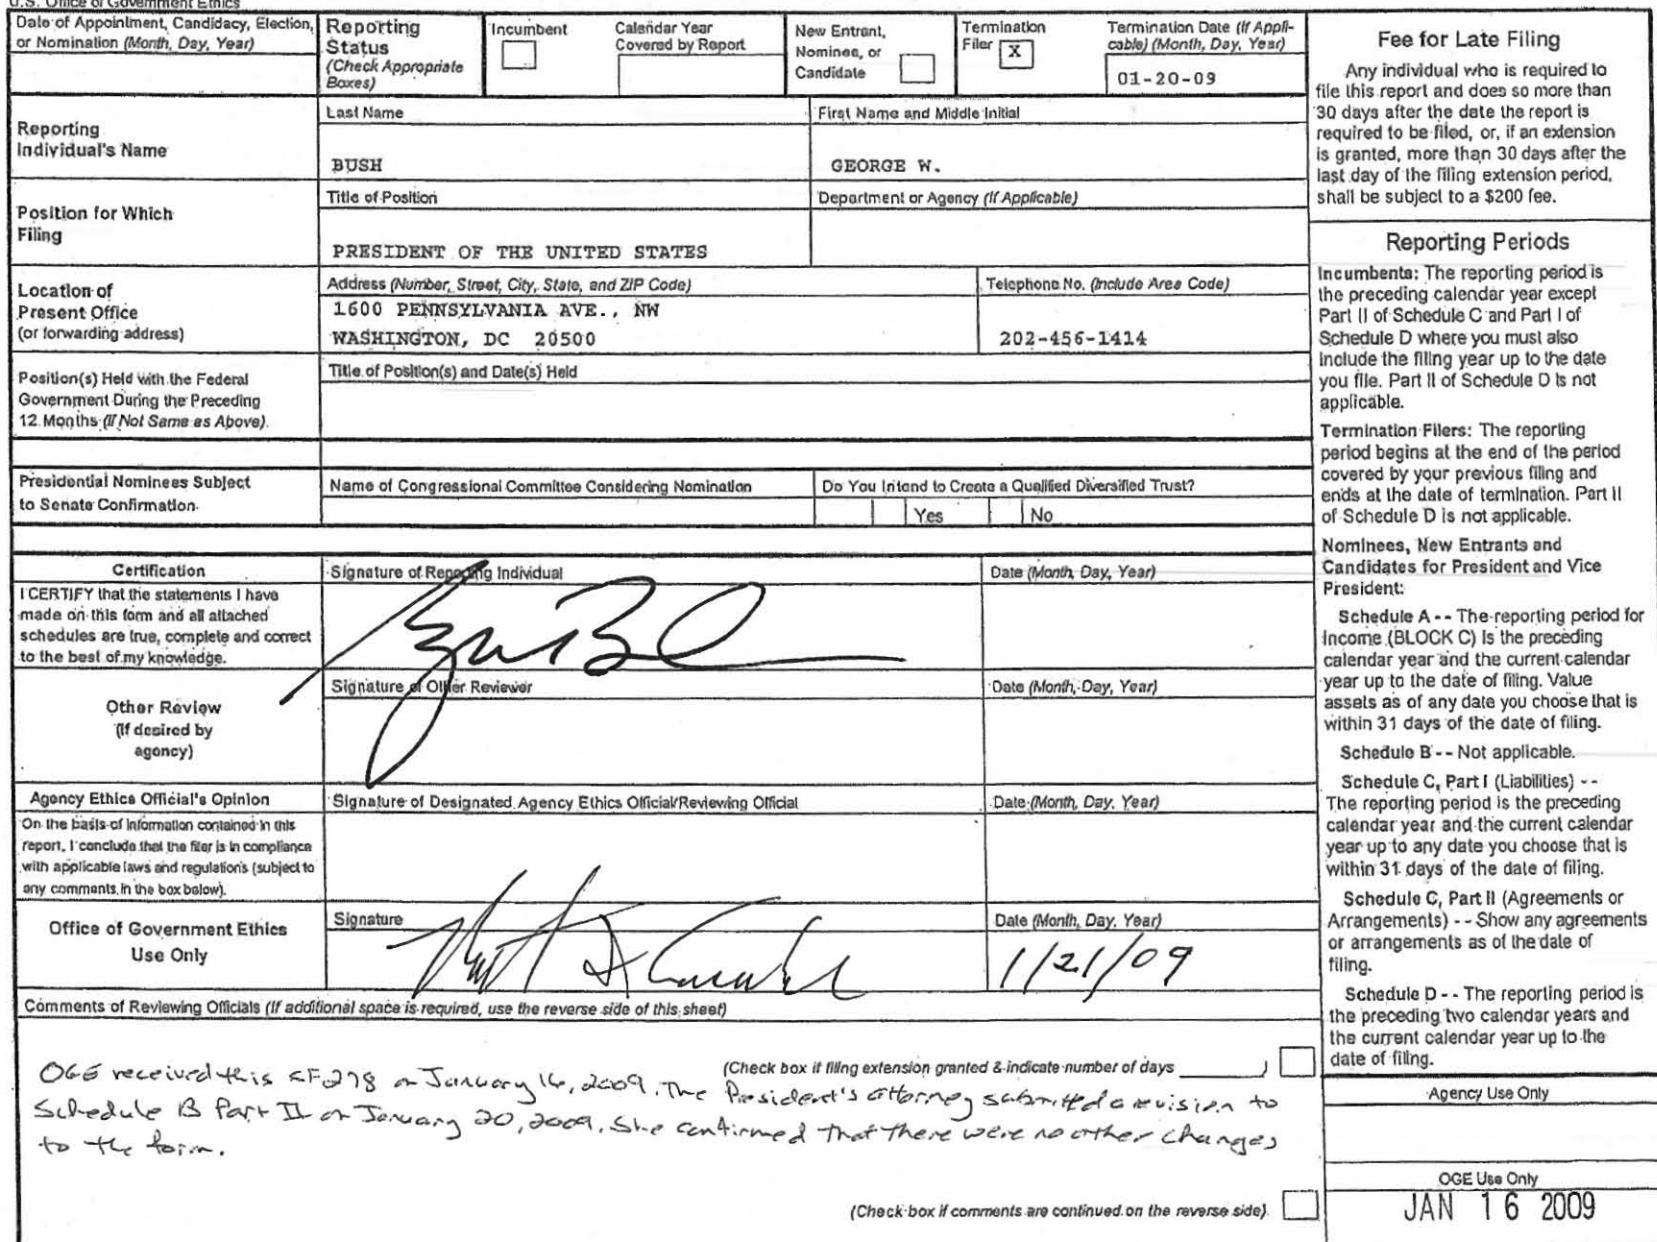 U.S. Office of Government Ethics
Date of Appointment, Candidacy, Election,
or Nomination (Month, Day, Year)
Reporting
Status
(Check Appropriate
Boxes)
Incumbent
Calendar Year
Covered by Report
New Entrant,
Nominee, or
Candidate
Termination
Filer X
Termination Date (If Appli-
cable) (Month, Day, Year)
01-20-09
Reporting
Individual's Name
Last Name
BUSH
First Name and Middle Initial
GEORGE W.
Position for Which
Filing
Title of Position
PRESIDENT OF THE UNITED STATES
Department or Agency (If Applicable)
Location of
Present Office
(or forwarding address)
Address (Number, Street, City, State, and ZIP Code)
1600 PENNSYLVANIA AVE., NW
WASHINGTON, DC 20500
Telephone No. (Include Area Code)
202-456-1414
Position(s) Held with the Federal
Government During the Preceding
12 Months (If Not Same as Above)
Title of Position(s) and Date(s) Held
Presidential Nominees Subject
to Senate Confirmation
Name of Congressional Committee Considering Nomination
Do You Intend to Create a Qualified Diversified Trust?
Yes No
Certification
I CERTIFY that the statements I have
made on this form and all attached
schedules are true, complete and correct
to the best of my knowledge.
Signature of Reporting Individual
Date (Month, Day, Year)
Other Review
(If desired by
agency)
Signature of Other Reviewer
Date (Month, Day, Year)
Agency Ethics Official's Opinion
On the basis of information contained in this
report, I conclude that the filer is in compliance
with applicable laws and regulations (subject to
any comments in the box below).
Signature of Designated Agency Ethics Official/Reviewing Official
Date (Month, Day, Year)
Office of Government Ethics
Use Only
Signature
Date (Month, Day, Year)
1/21/09
Comments of Reviewing Officials (If additional space is required, use the reverse side of this sheet)
(Check box if filing extension granted & indicate number of days ______)
OGE received this SF278 on January 16, 2009. The President's attorney submitted a revision to
Schedule B Part II on January 20, 2009. She confirmed that there were no other changes
to the form.
(Check box if comments are continued on the reverse side)
Fee for Late Filing
Any individual who is required to
file this report and does so more than
30 days after the date the report is
required to be filed, or, if an extension
is granted, more than 30 days after the
last day of the filing extension period,
shall be subject to a $200 fee.
Reporting Periods
Incumbents: The reporting period is
the preceding calendar year except
Part II of Schedule C and Part I of
Schedule D where you must also
include the filing year up to the date
you file. Part II of Schedule D is not
applicable.
Termination Filers: The reporting
period begins at the end of the period
covered by your previous filing and
ends at the date of termination. Part II
of Schedule D is not applicable.
Nominees, New Entrants and
Candidates for President and Vice
President:
Schedule A -- The reporting period for
Income (BLOCK C) is the preceding
calendar year and the current calendar
year up to the date of filing. Value
assets as of any date you choose that is
within 31 days of the date of filing.
Schedule B -- Not applicable.
Schedule C, Part I (Liabilities) --
The reporting period is the preceding
calendar year and the current calendar
year up to any date you choose that is
within 31 days of the date of filing.
Schedule C, Part II (Agreements or
Arrangements) -- Show any agreements
or arrangements as of the date of
filing.
Schedule D -- The reporting period is
the preceding two calendar years and
the current calendar year up to the
date of filing.
Agency Use Only
OGE Use Only
JAN 16 2009